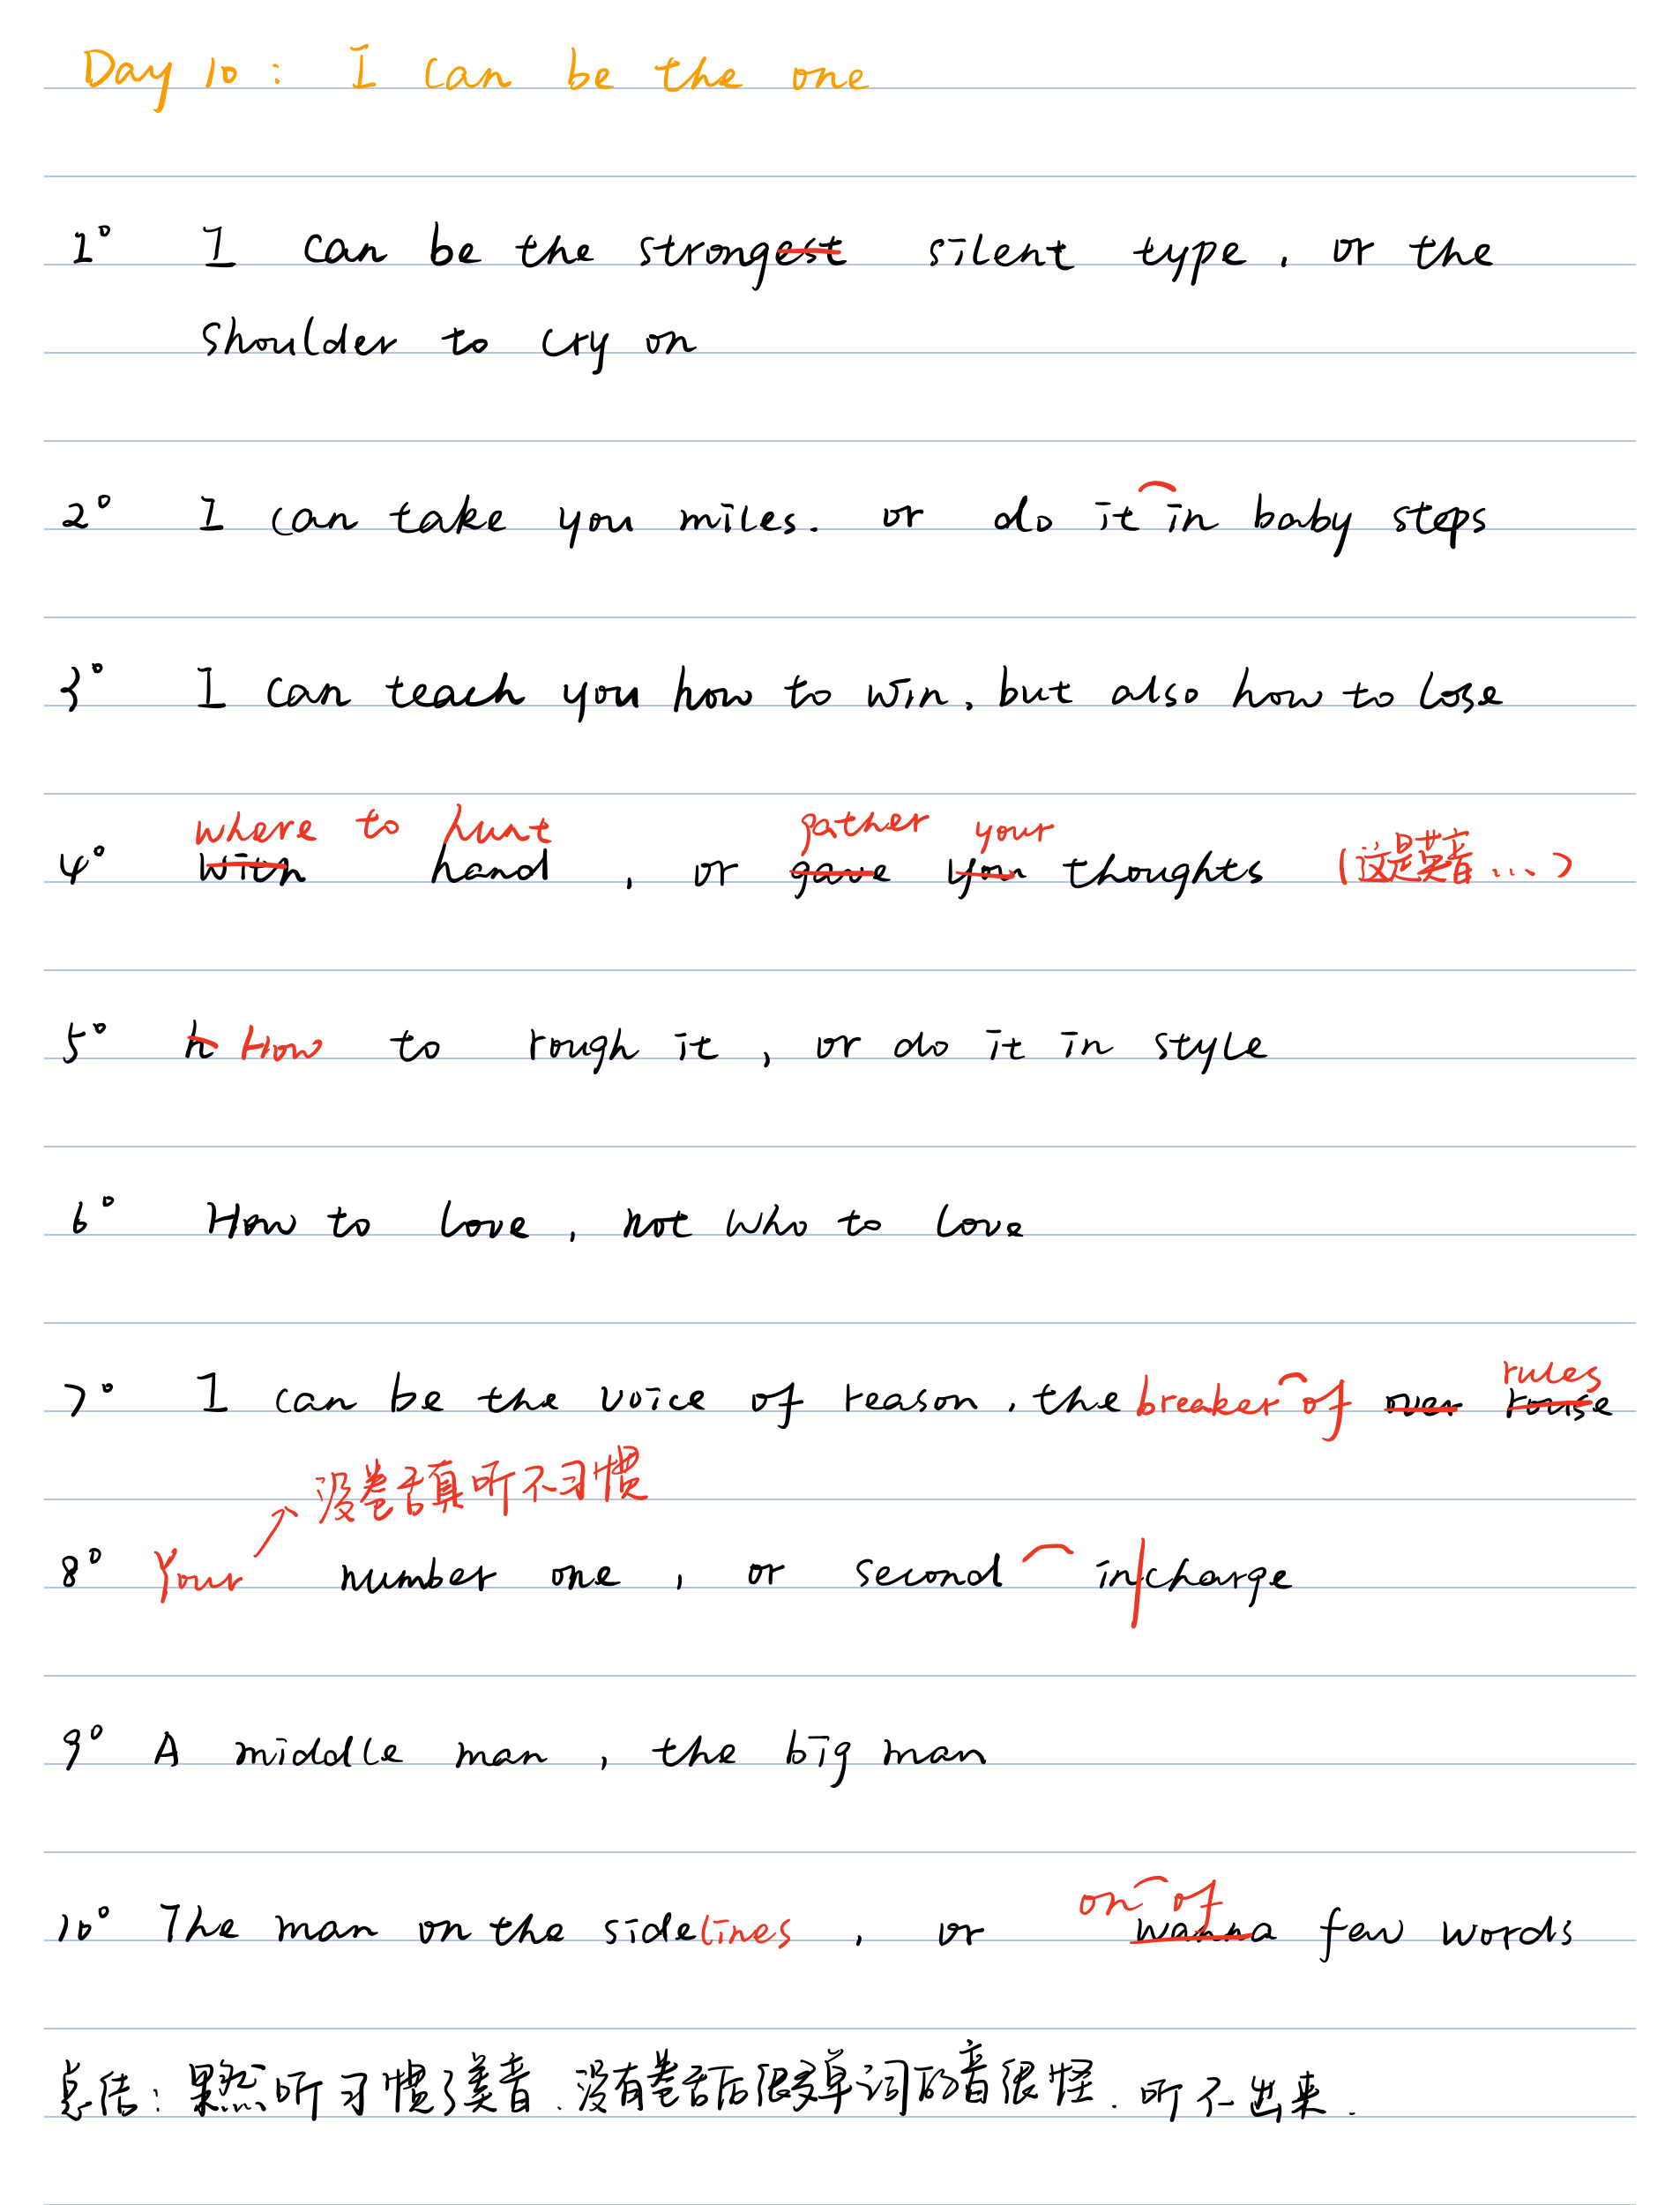 Day 10: I can be the one
1° I can be the strongest silent type, or the
shoulder to cry on
2° I can take you miles. or do it in baby steps
3° I can teach you how to win, but also how to lose
where to hunt gather your
4° with hand, or gave you thoughts (这是英音...)
5° h How to rough it, or do it in style
6° How to love, not who to love
rules
7° I can be the voice of reason, the breaker of over rouse
没卷舌真听不习惯
8° Your number one, or second in charge
9° A middle man, the big man
on of
10° The man on the sidelines, or wanna few words
总结: 果然听习惯了美音、没有卷舌后很多单词的音很怪. 听不出来.